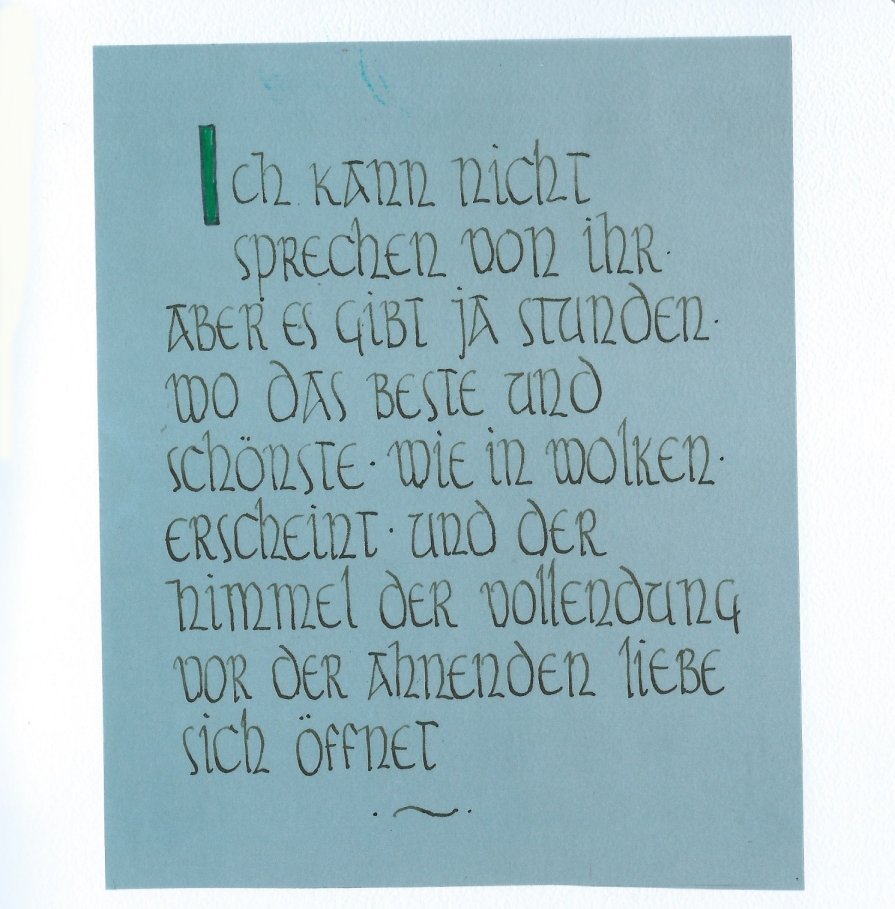 Ich kann nicht
sprechen von ihr·
aber es gibt ja stunden·
wo das beste und
schönste· wie in wolken·
erscheint· und der
himmel der vollendung
vor der ahnenden liebe
sich öffnet